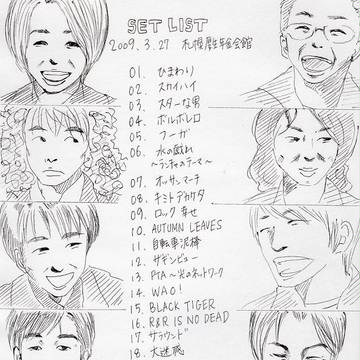 SET LIST
2009.3.27 札幌厚生年金会館
01. ひまわり
02. スカイハイ
03. スターな男
04. ボルボレロ
05. フーガ
06. 水の戯れ
〜ランチャのテーマ〜
07. オッサンマーチ
08. キミトデカケタ
09. ロック 幸せ
10. AUTUMN LEAVES
11. 自転車泥棒
12. サギンビュー
13. PTA〜光のネットワーク
14. WAO!
15. BLACK TIGER
16. R&R IS NO DEAD
17. サラウンド
18. 大迷惑